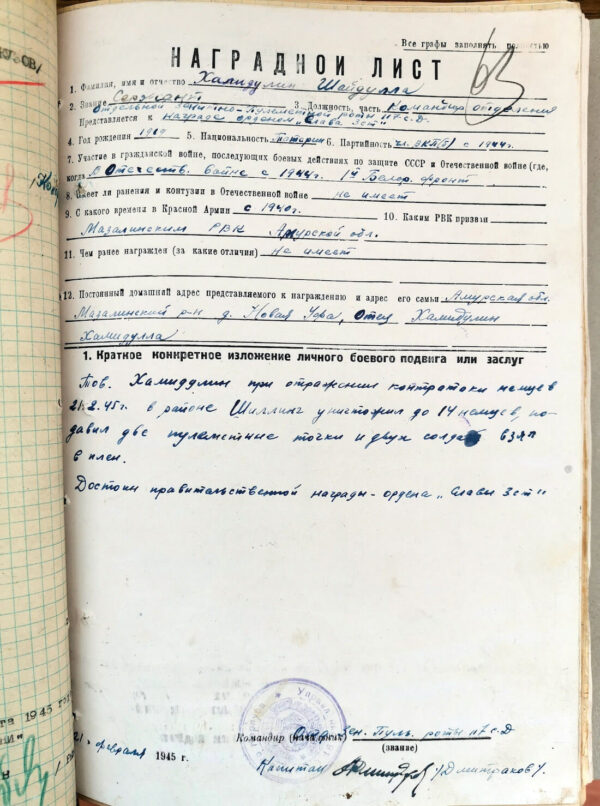 Все графы заполнять полностью
НАГРАДНОЙ ЛИСТ
1. Фамилия, имя и отчество Хамидулин Шайдулла
2. Звание Сержант 3. Должность, часть Командир отделения
отдельной зенитно-пулеметной роты 117 с.д.
Представляется к награде орденом „Слава 3 ст"
4. Год рождения 1919 5. Национальность Татарин 6. Партийность чл. ВКП(б) с 1944 г.
7. Участие в гражданской войне, последующих боевых действиях по защите СССР и Отечественной войне (где,
когда) в Отечеств. войне с 1944г. 1й Белор. фронт
8. Имеет ли ранения и контузии в Отечественной войне не имеет
9. С какого времени в Красной Армии с 1940г. 10. Каким РВК призван
Мазалинским РВК Амурской обл.
11. Чем ранее награжден (за какие отличия) не имеет
12. Постоянный домашний адрес представляемого к награждению и адрес его семьи Амурская обл.
Мазалинский р-н д. Новая Уфа, Отец Хамидулин
Хамидулла
1. Краткое конкретное изложение личного боевого подвига или заслуг
Тов. Хамидулин при отражении контратаки немцев
2.45г. в районе Шиллинг уништожил до 14 немцев, по-
давил две пулеметные точки и двух солдат взял
в плен.
Достоин правительственной награды - ордена „Слави 3 ст"
Командир (начальник) Пуль. роты 117 с.д.
(звание)
февраля 1945 г.
Капитан /Дмитраков/.
1945